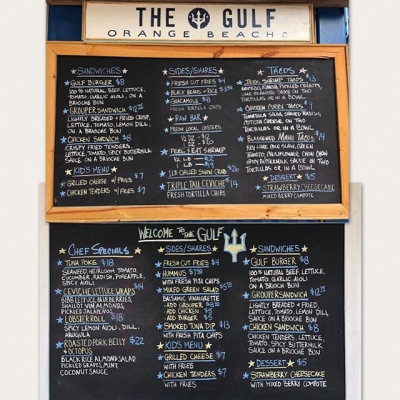 THE GULF
ORANGE BEACH
SANDWICHES
GULF BURGER $8
100% NATURAL BEEF, LETTUCE,
TOMATO, GARLIC AIOLI, ON A
BRIOCHE BUN
GROUPER SANDWICH $12
LIGHTLY BREADED + FRIED CRISP,
LETTUCE, TOMATO, LEMON DILL,
ON A BRIOCHE BUN
CHICKEN SANDWICH $8
CRISPY FRIED TENDERS,
LETTUCE, TOMATO, SPICY BUTTERMILK
SAUCE ON A BRIOCHE BUN
KID'S MENU
GRILLED CHEESE W/ FRIES $7
CHICKEN TENDERS W/ FRIES $7
SIDES/SHARES
FRESH CUT FRIES $4
BLACK BEANS + RICE
GUACAMOLE $8
FRESH TORTILLA CHIPS
RAW BAR
FRESH LOCAL OYSTERS
PEEL & EAT SHRIMP
1/2 LB
1 LB
TRIPLE TAIL CEVICHE $14
FRESH TORTILLA CHIPS
TACOS
TORTILLAS OR IN A BOWL
CHICKEN CURRY TACOS $9
TORTILLAS OR IN A BOWL
BLACKENED MAHI TACOS $14
SPICY BUTTERMILK SAUCE ON TWO
TORTILLAS OR IN A BOWL
DESSERT $5
STRAWBERRY CHEESECAKE
MIXED BERRY COMPOTE
WELCOME TO THE GULF
CHEF SPECIALS
TUNA POKE $18
SEAWEED, HEIRLOOM TOMATO,
CUCUMBER, RADISH, PINEAPPLE,
SPICY AIOLI
CEVICHE LETTUCE WRAPS $14
BIBB LETTUCE, BLUEBERRIES,
SHALLOT VIN, ALMONDS,
PICKLED JALAPEÑOS
LOBSTER ROLL $18
SPICY LEMON AIOLI, DILL,
ARUGULA
ROASTED PORK BELLY $22
& OCTOPUS
BLACK RICE, ALMOND SALAD
PICKLED GRAPES, MINT,
COCONUT SAUCE
SIDES/SHARES
FRESH CUT FRIES $4
HUMMUS
WITH FRESH PITA CHIPS
MIXED GREEN SALAD
BALSAMIC VINAIGRETTE
ADD GROUPER
ADD CHICKEN $5
ADD BURGER $5
SMOKED TUNA DIP $13
WITH FRESH PITA CHIPS
KIDS MENU
GRILLED CHEESE $7
WITH FRIES
CHICKEN TENDERS $7
WITH FRIES
SANDWICHES
GULF BURGER $8
100% NATURAL BEEF, LETTUCE,
TOMATO, GARLIC AIOLI
ON A BRIOCHE BUN
GROUPER SANDWICH $12
LIGHTLY BREADED + FRIED,
LETTUCE, TOMATO, LEMON DILL
SAUCE ON A BRIOCHE BUN
CHICKEN SANDWICH $8
CHICKEN TENDERS, LETTUCE,
TOMATO, SPICY BUTTERMILK
SAUCE ON A BRIOCHE BUN
DESSERT $5
STRAWBERRY CHEESECAKE
WITH MIXED BERRY COMPOTE